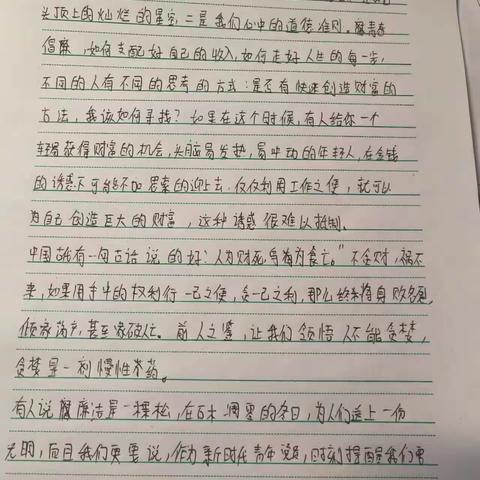 头顶上的灿烂的星空,二是我们心中的道德准则。
倡廉,如何支配好自己的收入,如何走好人生的每一步,
不同的人有不同的思考的方式:是否有快速创造财富的
方法,我该如何寻找?如果在这个时候,有人给你一个
轻易获得财富的机会,头脑易发热,易冲动的年轻人,在金钱
的诱惑下可能不加思索的迎上去,仅仅利用工作之便,就可以
为自己创造巨大的财富,这种诱惑很难以抵制。
中国古有一句古话说的好:人为财死鸟为食亡。"不贪财,祸不
来,如果用手中的权利行一己之便,贪一己之利,那么终将身败名裂,
倾家荡产,甚至家破人亡。前人之鉴,让我们领悟人不能贪婪,
贪婪是一剂慢性毒药。
有人说廉洁是一棵松,在百木凋零的冬日,为人们送上一份
光明,而且我们更要说,作为新时代青年党员,时刻提醒我们